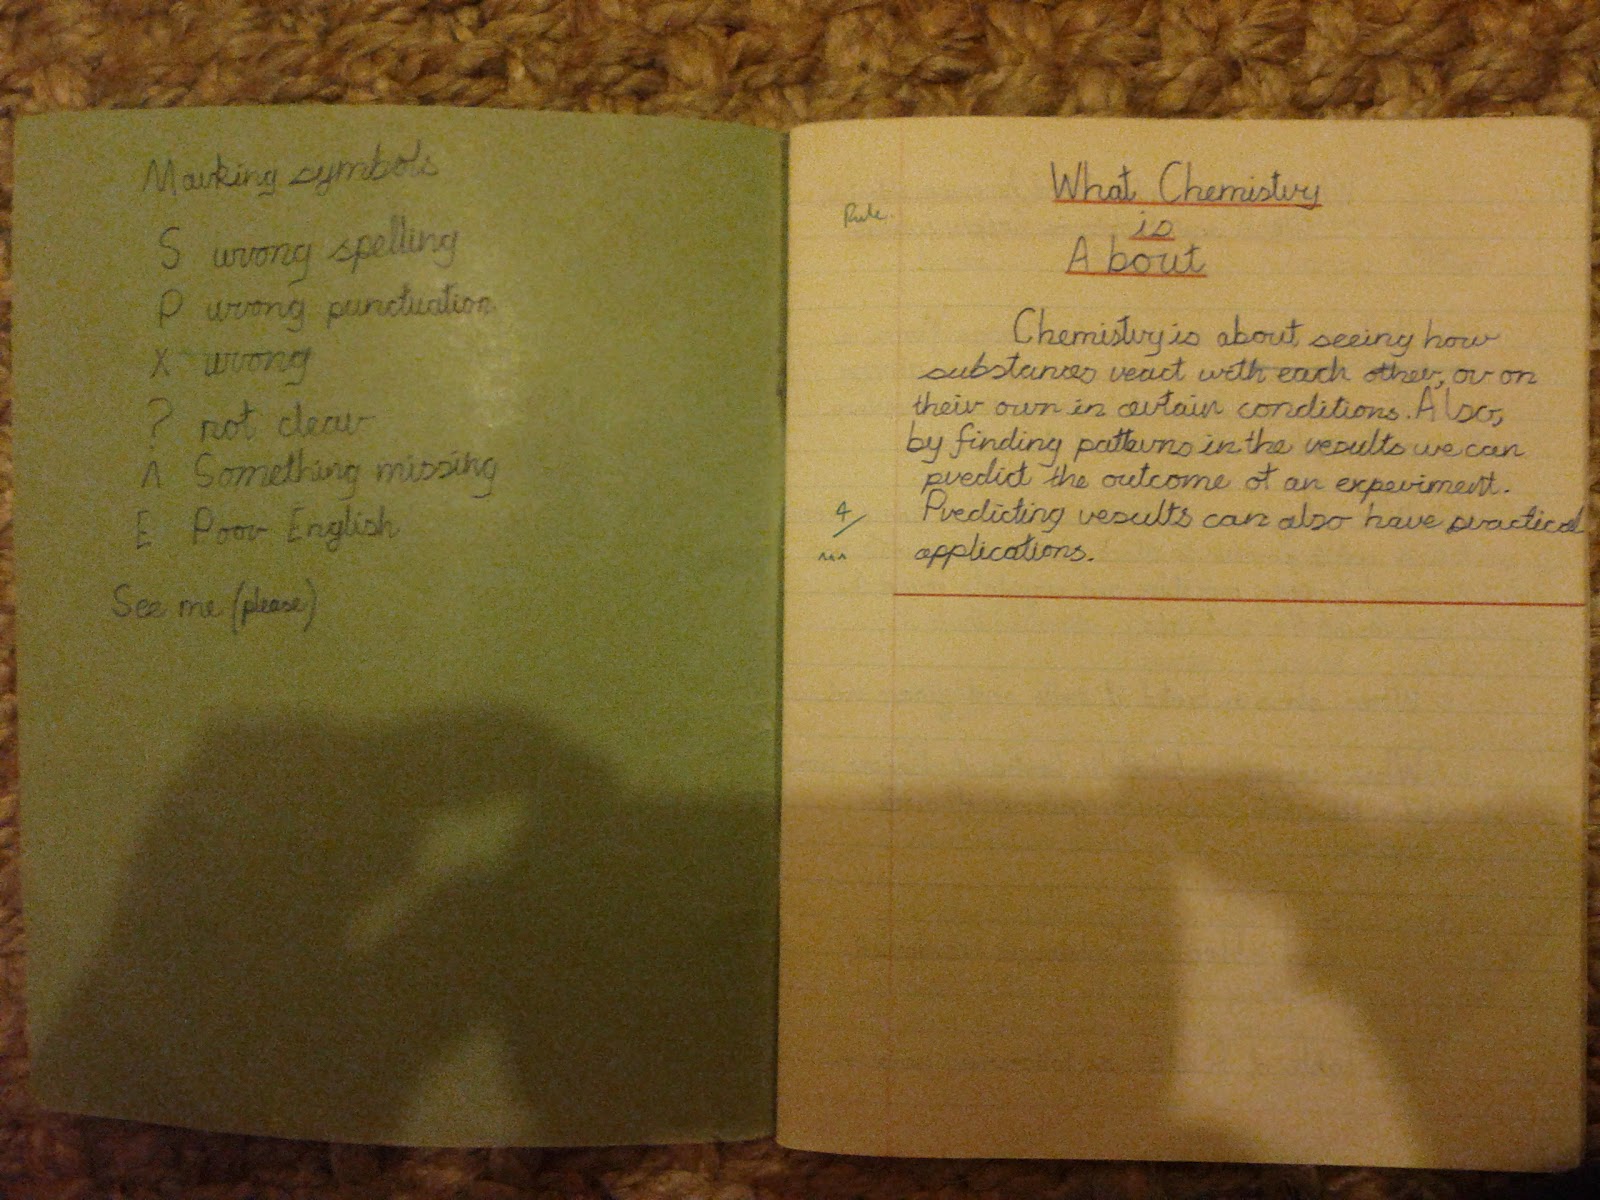 Marking symbols
S wrong spelling
P wrong punctuation
X wrong
? not clear
^ Something missing
E Poor English
See me (please)
What Chemistry
is
About
Rule.
Chemistry is about seeing how
substances react with each other, or on
their own in certain conditions. Also,
by finding patterns in the results we can
predict the outcome of an experiment.
Predicting results can also have practical
applications.
4/